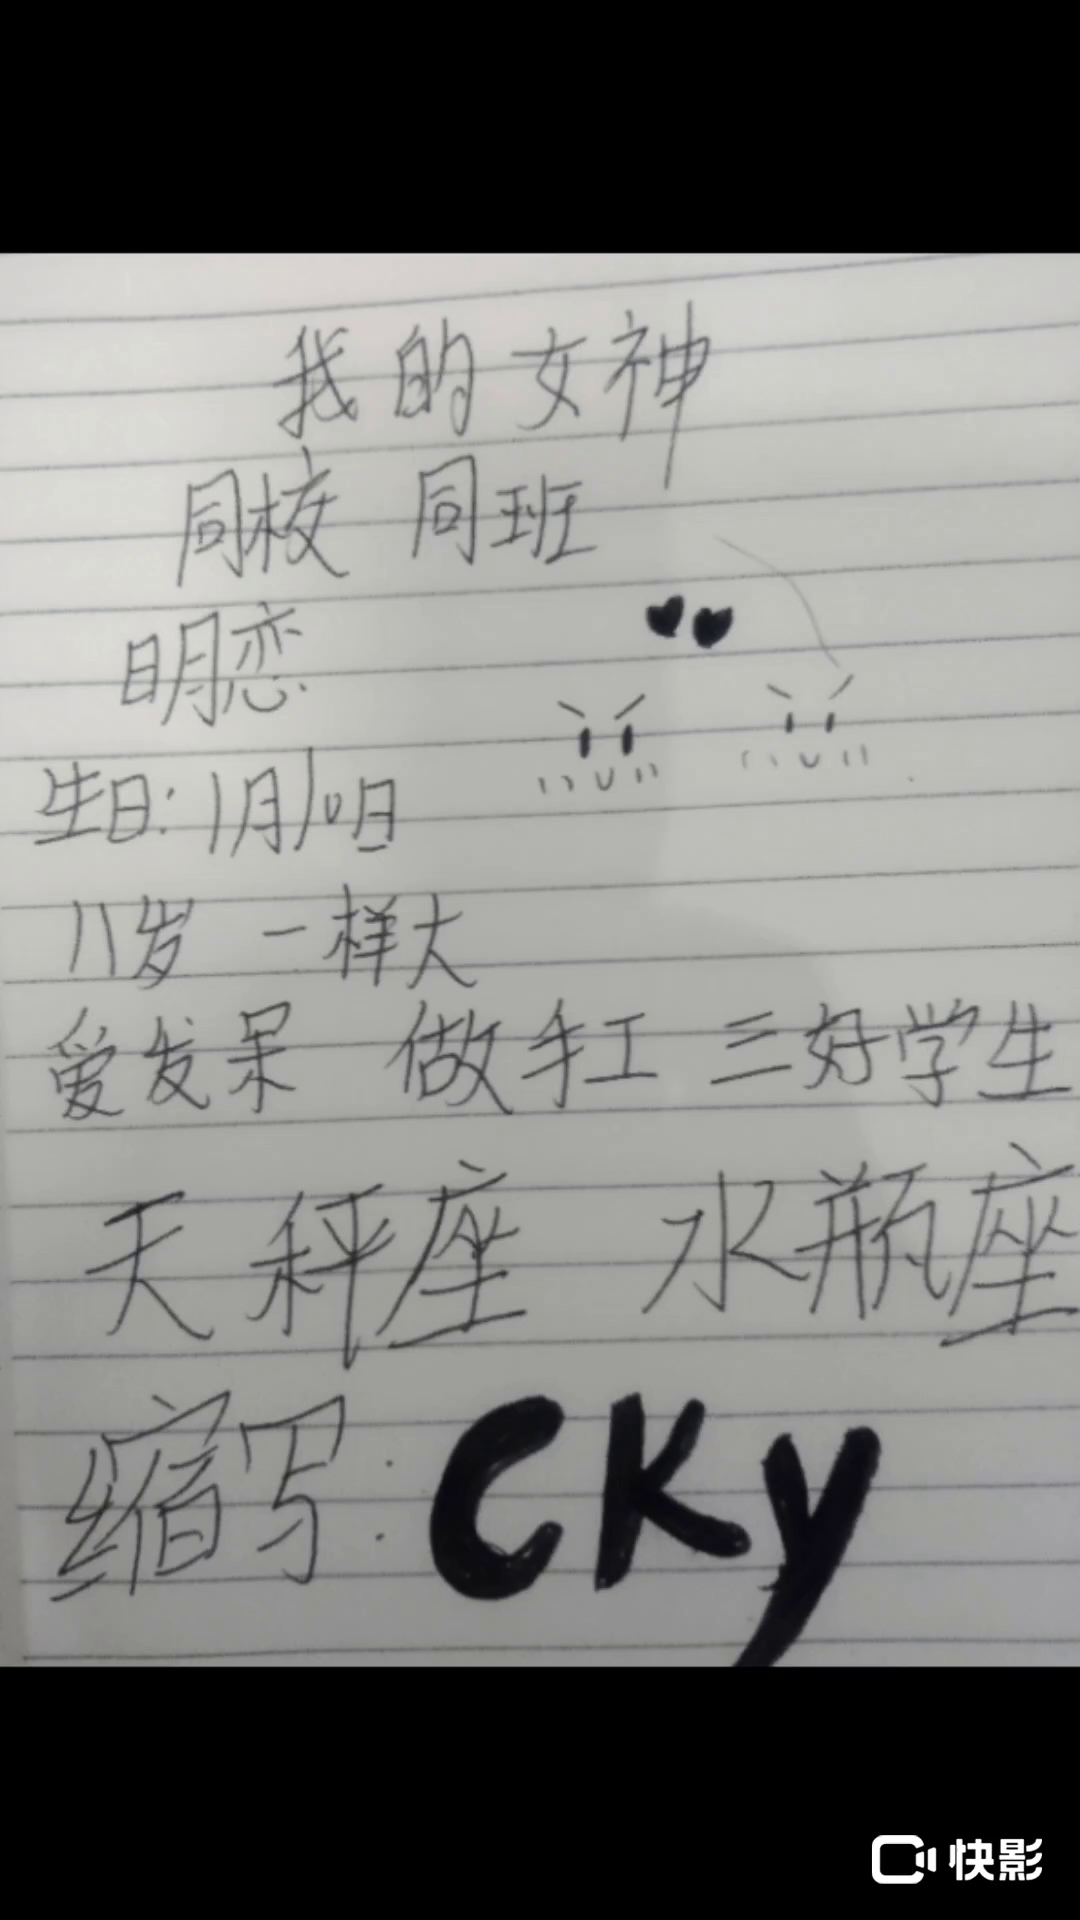 我的女神
同校 同班
明恋
11岁 一样大
爱发呆 做手工 三好学生
天秤座 水瓶座
缩写:CKy
快影